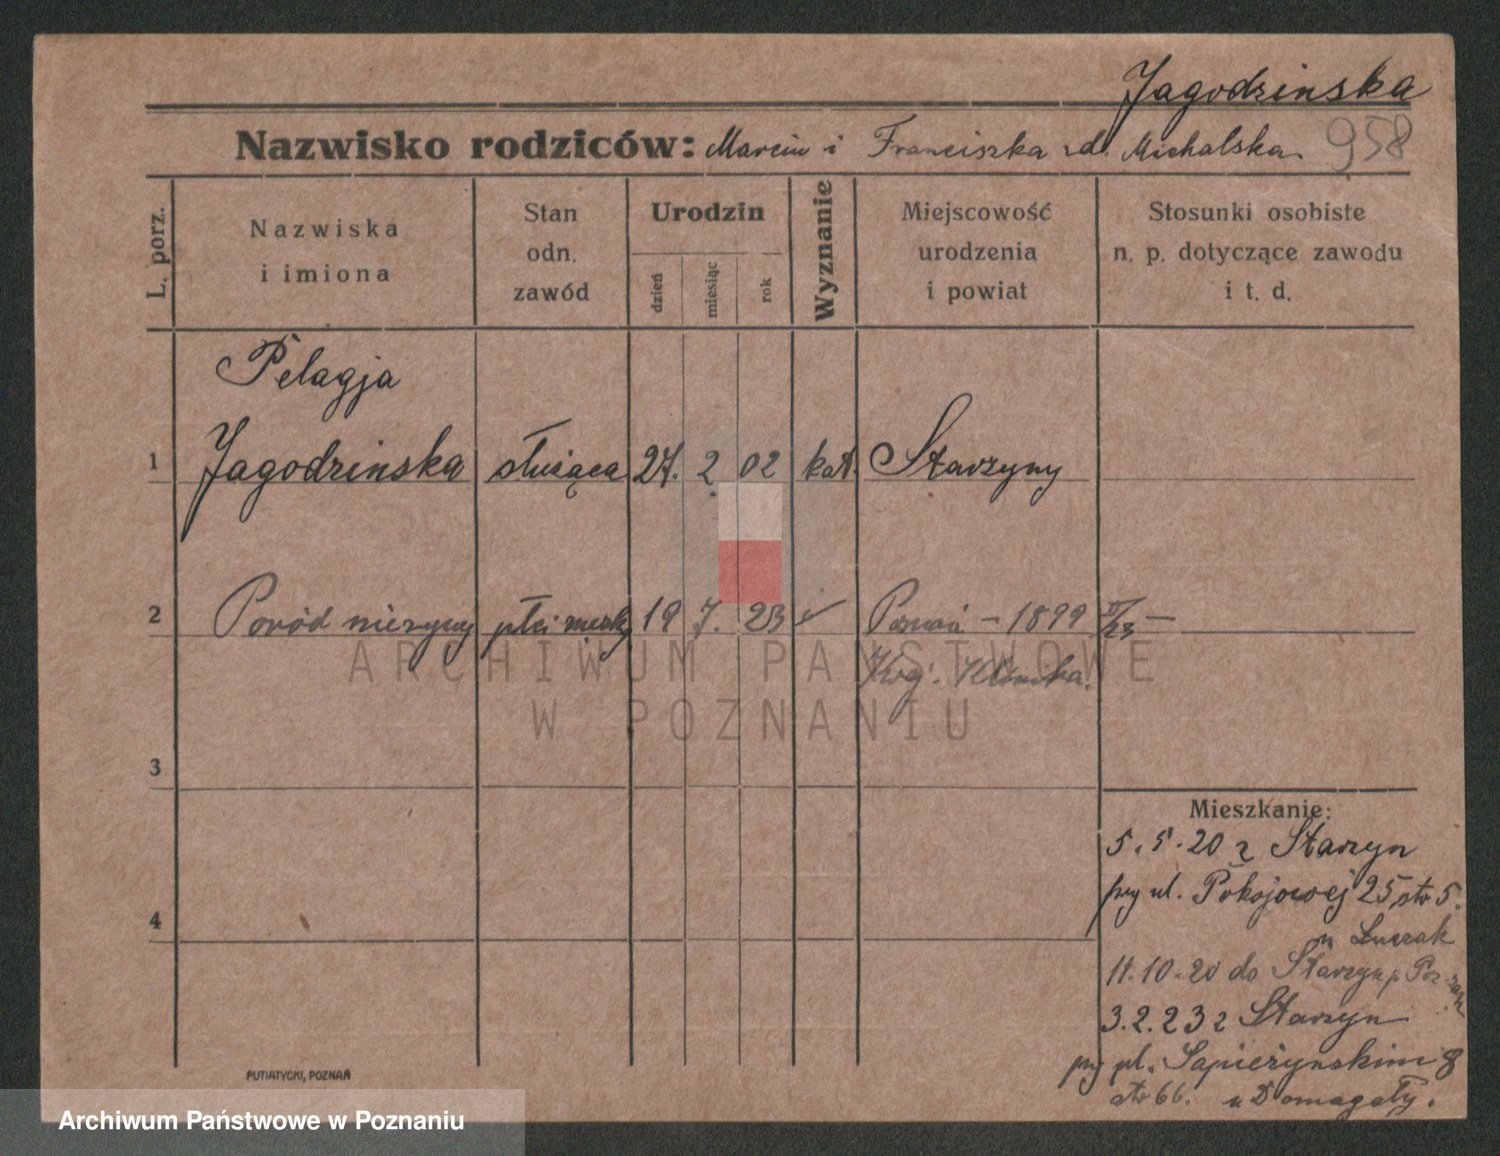 Jagodzinska
Nazwisko rodziców: Marcin i Franciszka zd. Michalska
958
L. porz.
Nazwiska
i imiona
Stan
odn.
zawód
Urodzin
dzień
miesiąc
rok
Wyznanie
Miejscowość
urodzenia
i powiat
Stosunki osobiste
n. p. dotyczące zawodu
i t. d.
Pelagja
1 Jagodzinska służąca 27. 2 02 kat. Starzyny
2 Poród nieżywy płci męsk 19 7. 23 Poznań - 1899
Klinika.
ARCHIWUM PAŃSTWOWE
W POZNANIU
3
Mieszkanie:
5.5.20 z Starzyn
przy ul. Pokojowej 25 str 5.
u Łuczak
4
11.10.20 do Starzyn p. Poz.
3.2.23 z Starzyn
przy pl. Sapieżynskim 8
str 66. u Domagały.
PUTIATYCKI, POZNAŃ
Archiwum Państwowe w Poznaniu